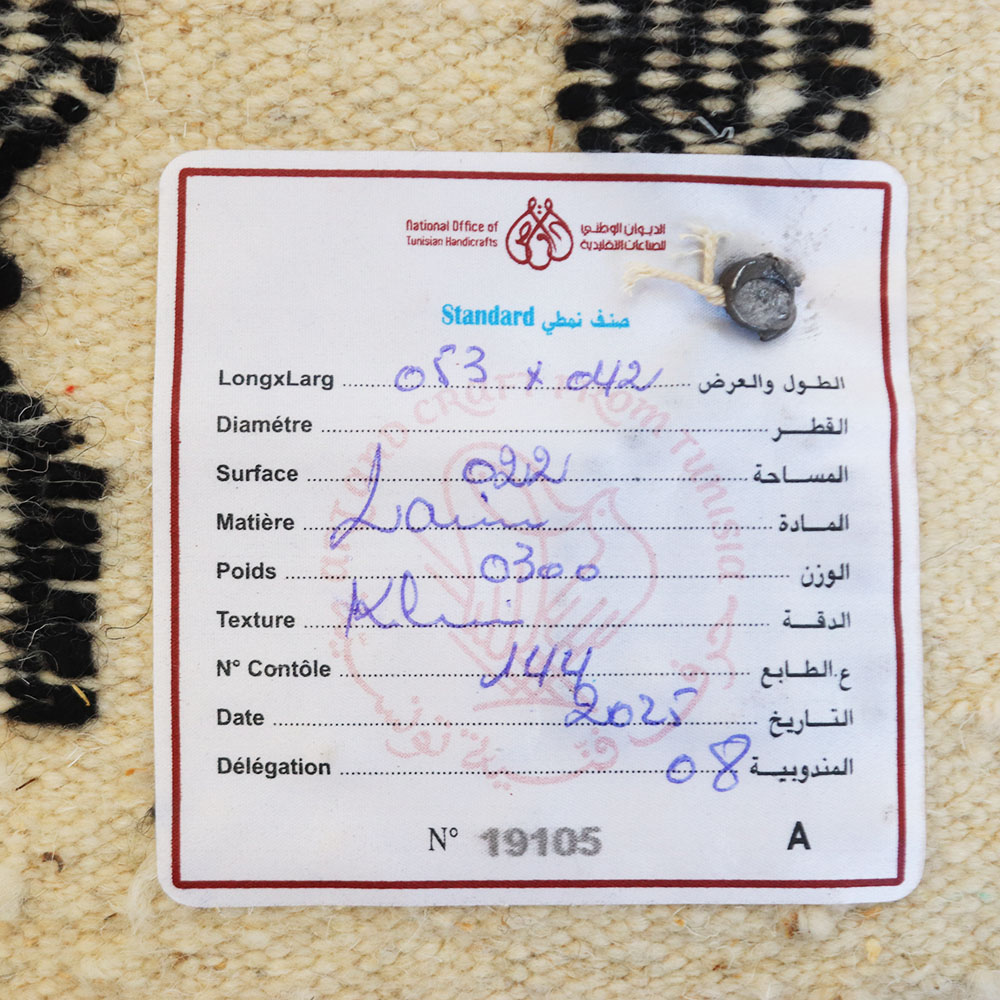 National Office of
Tunisian Handicrafts
الديوان الوطني
للصناعات التقليدية
Standard صنف نمطي
LongxLarg 053 x 042 الطول والعرض
Diamétre القطر
Surface 022 المساحة
Matière Laine المادة
Poids 0300 الوزن
Texture Klim الدقة
N° Contôle 144 ع.الطابع
Date 2025 التاريخ
Délégation 08 المندوبية
N° 19105 A
CRAFT FROM TUNISIA